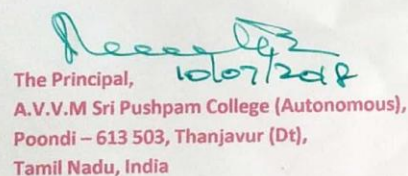 10/07/2018
The Principal,
A.V.V.M Sri Pushpam College (Autonomous),
Poondi – 613 503, Thanjavur (Dt),
Tamil Nadu, India